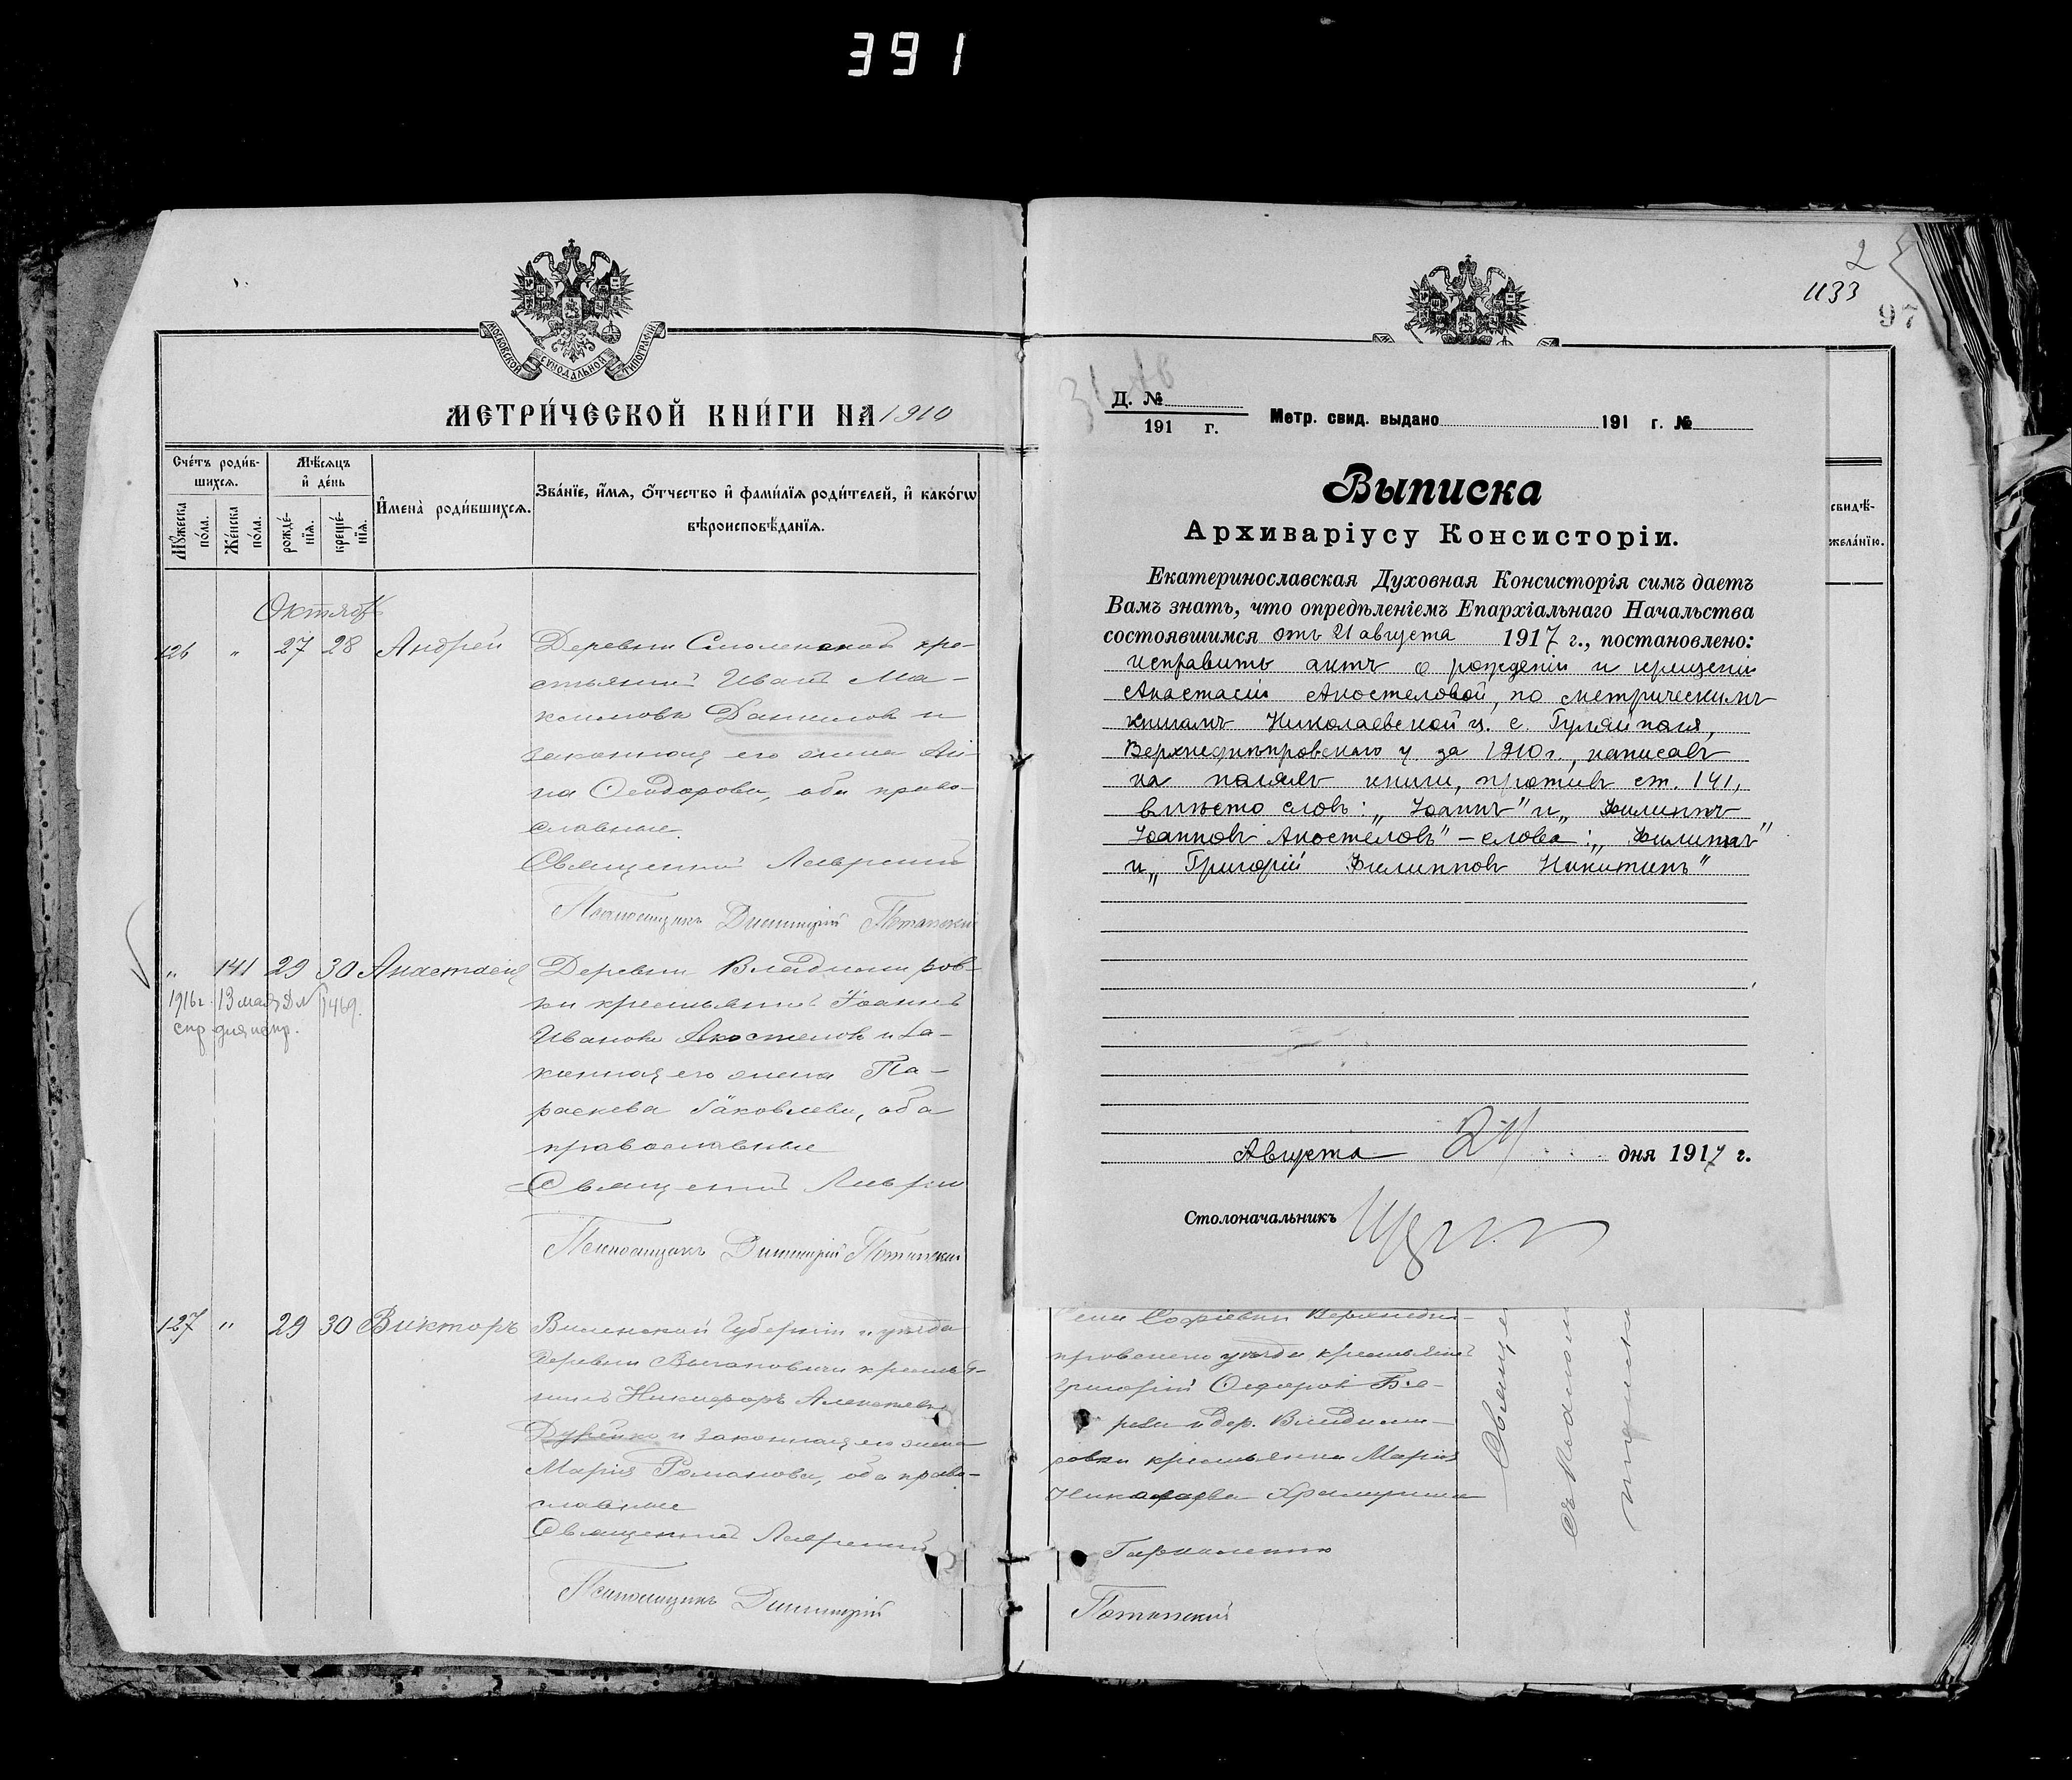 391
МОСКОВСКОЙ СѴНОДАЛЬНОЙ ТИПОГРАФІИ
МЕТРИ́ЧЕСКОЙ КНИ́ГИ НА 1910
Сче́тъ роди́в-
шихся.
Мꙋ́жеска по́ла.
Же́нска по́ла.
Мѣ́сяцъ
и҆ де́нь
рожде́-
нїя.
креще́-
нїя.
И҆мена̀ роди́вшихся.
Зва́нїе, и҆́мя, ѻ҆́тчество и҆ фами́лїя роди́телей, и҆ како́гѡ
вѣроисповѣ́данїя.
Октябрь
126 " 27 28 Андрей
Деревни Смоленской кре-
стьянинъ Иванъ Ма-
ксимовъ Данилов и
законная его жена Ан-
на Ѳеодорова, оба право-
славные.
Священникъ Лаврентій
Псаломщикъ Димитрій Потапскій
" 141 29 30 Анастасія
1916 г. 13 мая Д №
спр для испр.
Деревни Владимиров-
ки крестьянинъ Іоаннъ
Ивановъ Апостелов и за-
конная его жена Па-
раскева Іаковлева, оба
православные
Священникъ Лаврен
Псаломщикъ Димитрій Потапскій
127 " 29 30 Викторъ
Виленской Губерніи и уѣзда
деревни крестья-
нинъ Никифоръ Алексѣевъ
и законная его жена
Марія Романова, оба право-
славные
Священникъ Лаврентій
Псаломщикъ Димитрій
2
1133
97
свидѣ-
жела́нїю.
Д. №
191 г.
Метр. свид. выдано 191 г. №
Выписка
Архиваріусу Консисторіи.
Екатеринославская Духовная Консисторія симъ даетъ
Вамъ знать, что опредѣленіемъ Епархіальнаго Начальства
состоявшимся отъ 21 августа 1917 г., постановлено:
исправить актъ о рожденіи и крещеніи
Анастасіи Апостеловой, по метрическимъ
книгамъ Николаевской ц. с. Гуляйполя,
Верхнеднѣпровскаго у. за 1910 г., написавъ
на поляхъ книги, противъ ст. 141,
вмѣсто словъ: „Іоаннъ" и „Филиппъ
Іоанновъ Апостеловъ" – слова: „Филиппъ"
и „Григорій Филипповъ Никитинъ"
Августа 24 дня 1917 г.
Столоначальникъ
Верхнедн-
провскаго уѣзда крестьянинъ
Григорій
и дер. Владими-
ровки крестьянка Марія
Николаева
Потапскій